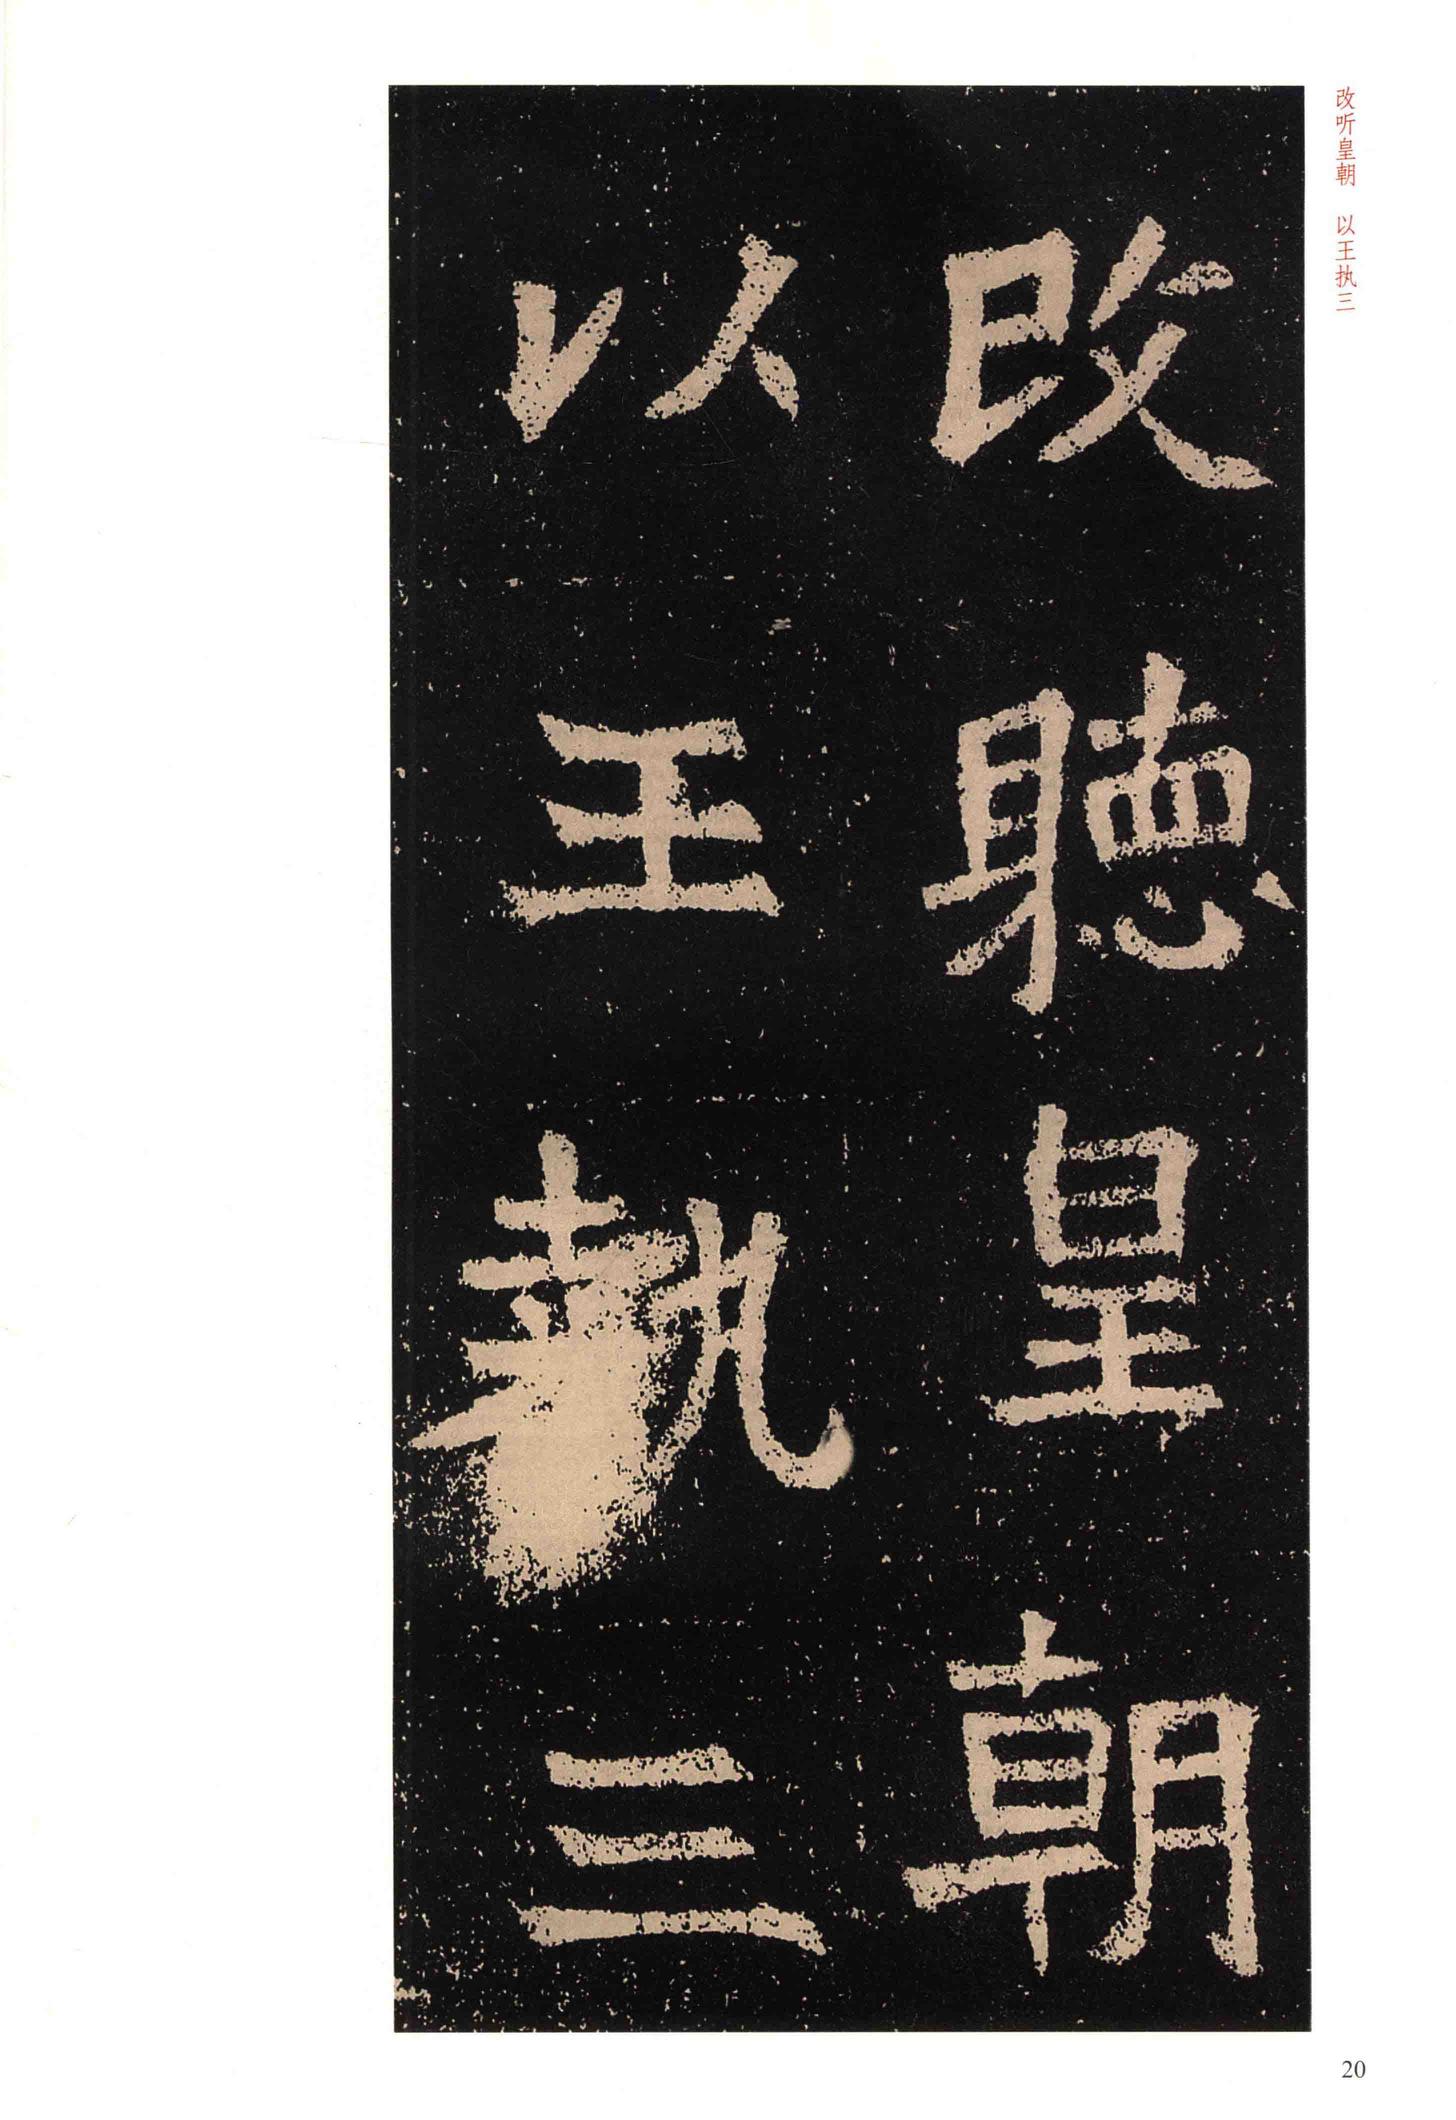 改听皇朝 以王执三
改聽皇朝
以王執三
20